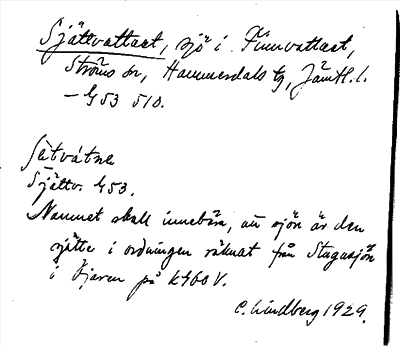 Sjättvattnet, sjö i Finnvattnet,
Ströms sn, Hammerdals tg, Jämtl. l.
– G53 510.
Sätvátne
Sjättv. G53.
Namnet skall innebära, att sjön är den
sjätte i ordningen räknat från Stugusjön
i Fjären på
C. Lindberg 1929.